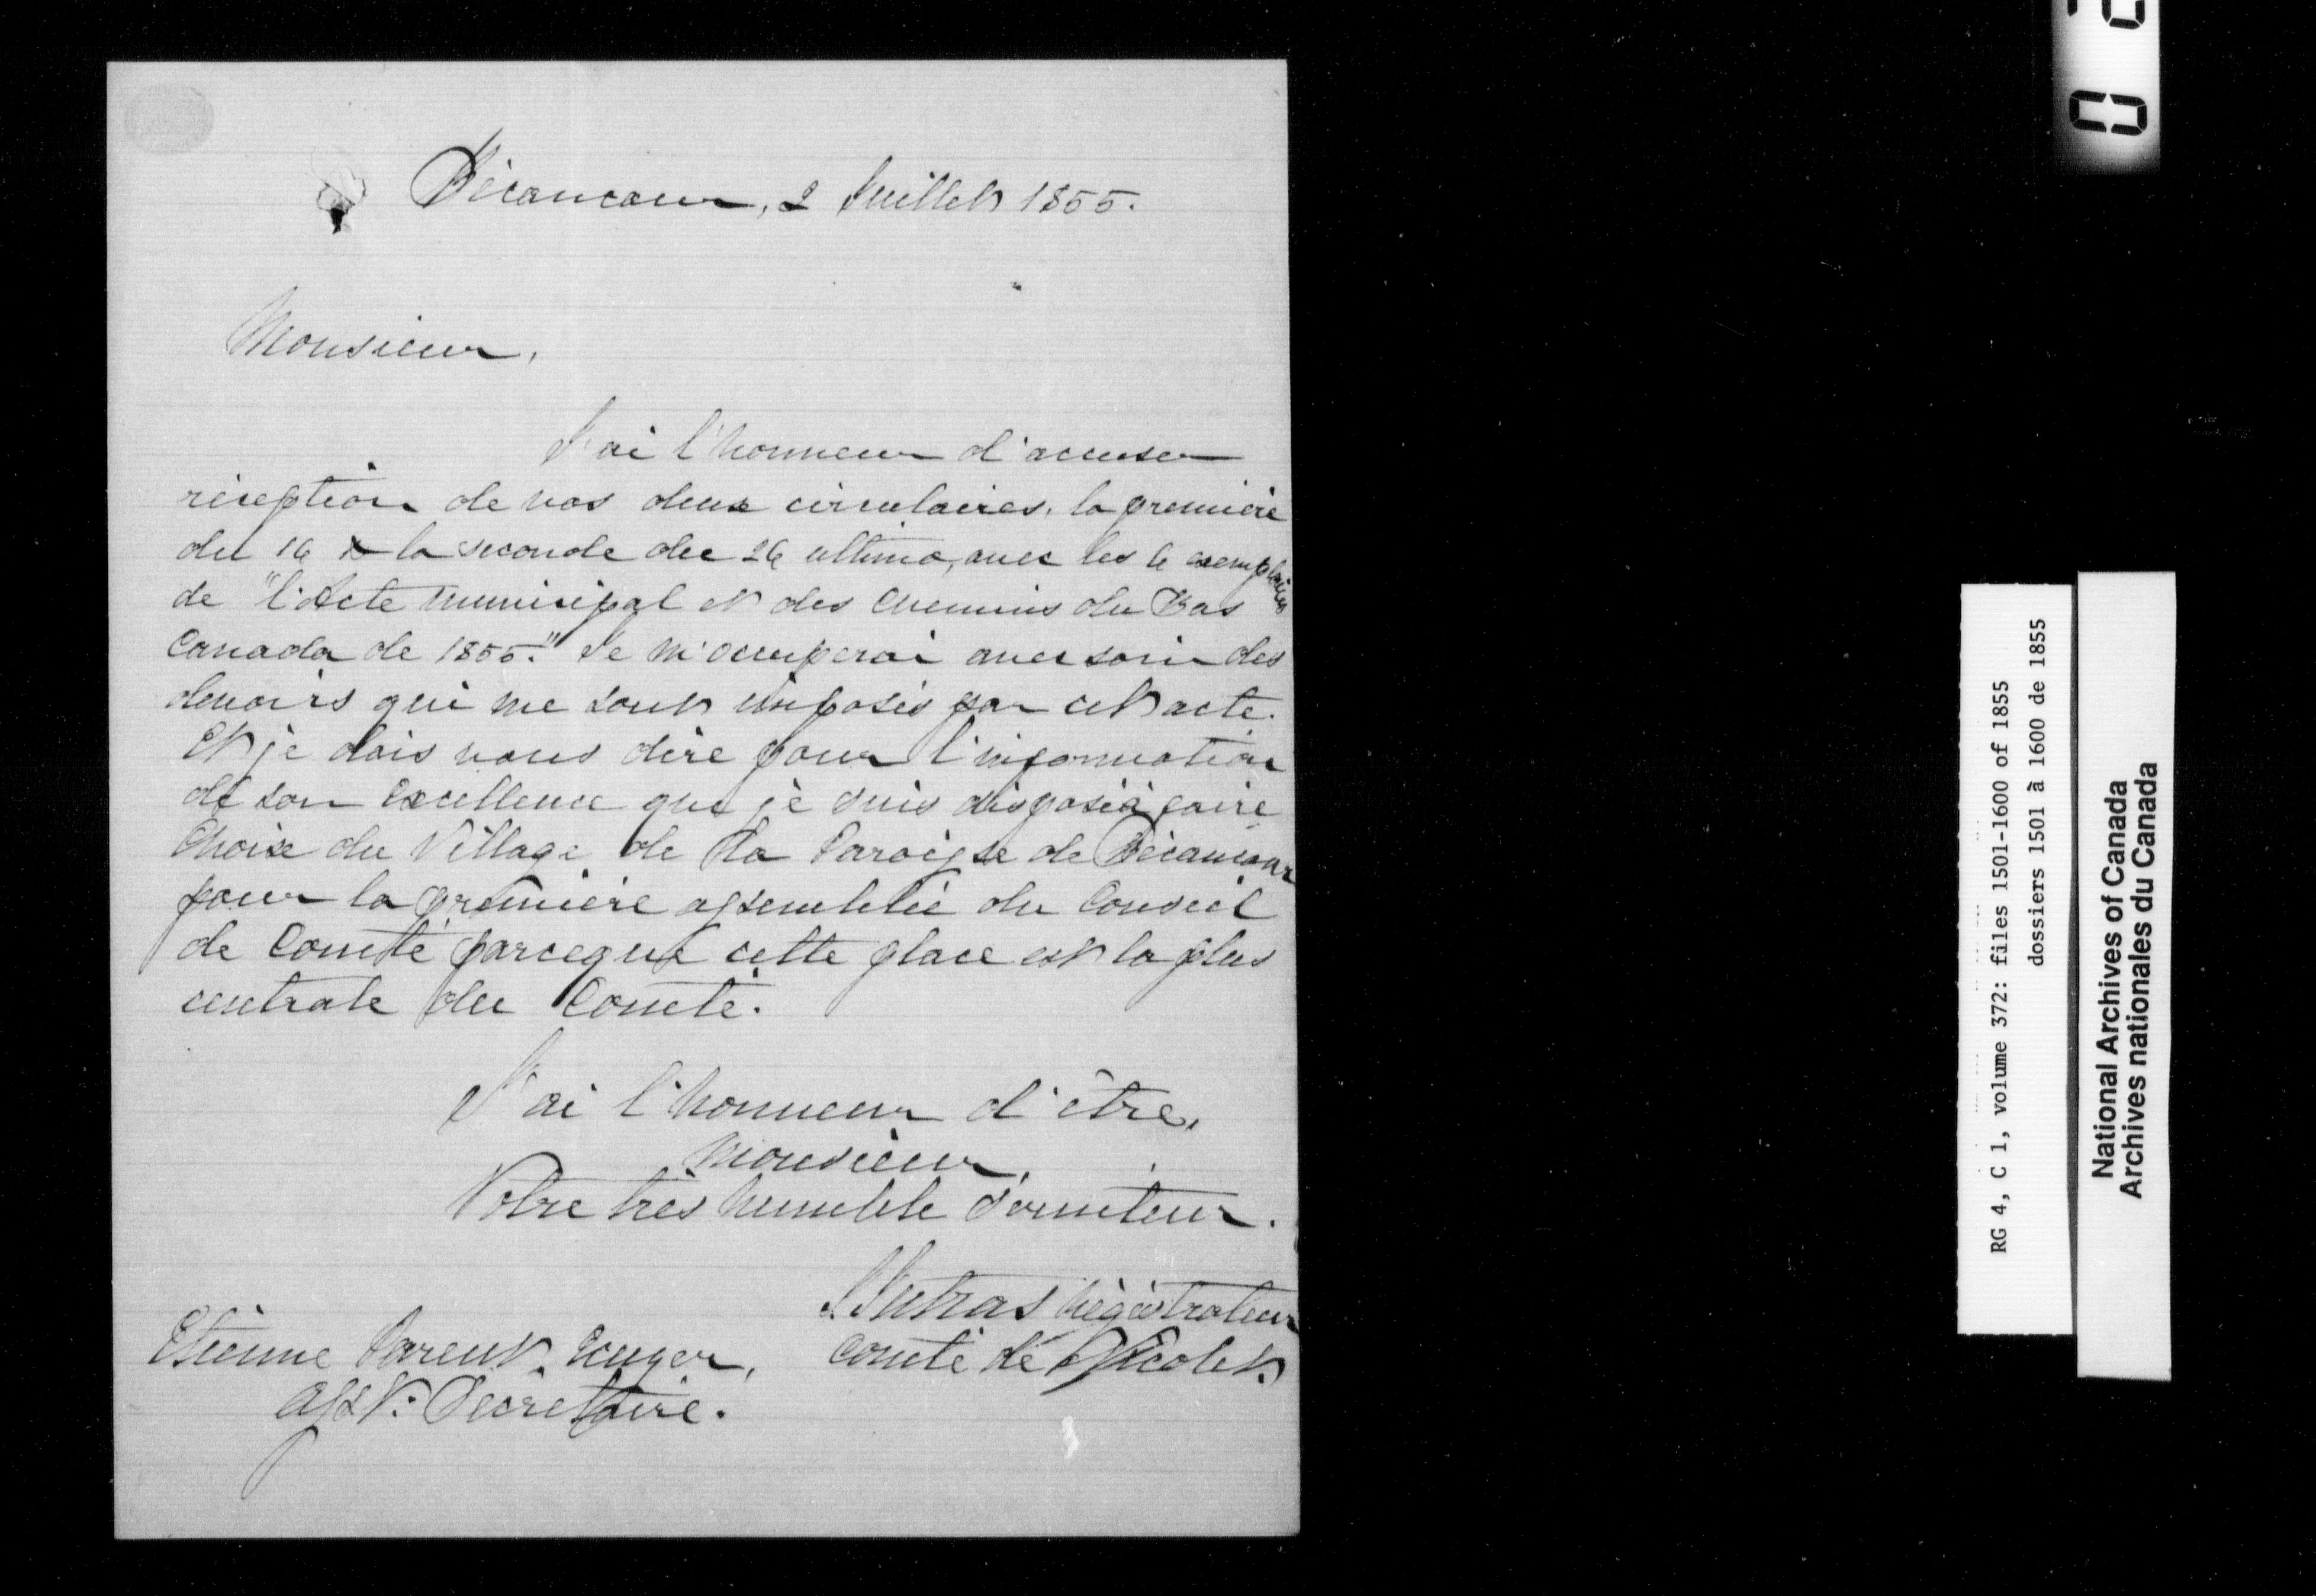 Bécancour, 2 Juillet 1855.
Monsieur,
J'ai l'honneur d'accuser
réception de vos deux circulaires, la première
du 16 & la seconde du 26 ultimo, avec les 6 exemplaires
de "l'Acte municipal et des chemins du Bas
Canada de 1855." Je m'occuperai avec soin des
devoirs qui me sont imposés par cet acte.
Et je dois vous dire pour l'information
de son Excellence que je suis disposé à faire
Choix du Village de la Paroisse de Bécancour
pour la première assemblée du Conseil
de Comté parceque cette place est la plus
centrale du Comté.
J'ai l'honneur d'être,
Monsieur,
Votre très humble Serviteur.
Dutras Régistrateur
Comté de Nicolet
Etienne Parent Ecuyer,
Asst. Secrétaire.
RG 4, C 1, volume 372: files 1501-1600 of 1855
dossiers 1501 à 1600 de 1855
National Archives of Canada
Archives nationales du Canada